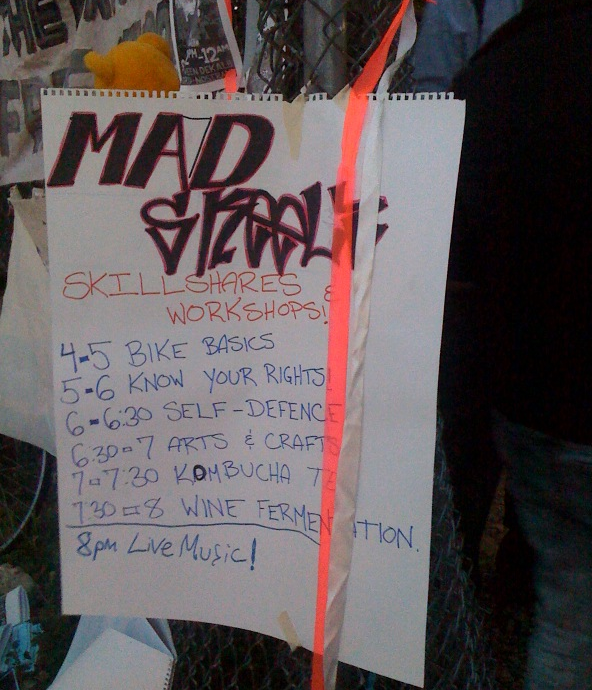 PM-12AM
MAD
SKEELZ
SKILLSHARES &
WORKSHOPS!
4-5 BIKE BASICS
5-6 KNOW YOUR RIGHTS!
6-6:30 SELF-DEFENCE
6:30-7 ARTS & CRAFTS
7-7:30 KOMBUCHA
7:30-8 WINE FERMENTATION.
8pm Live Music!